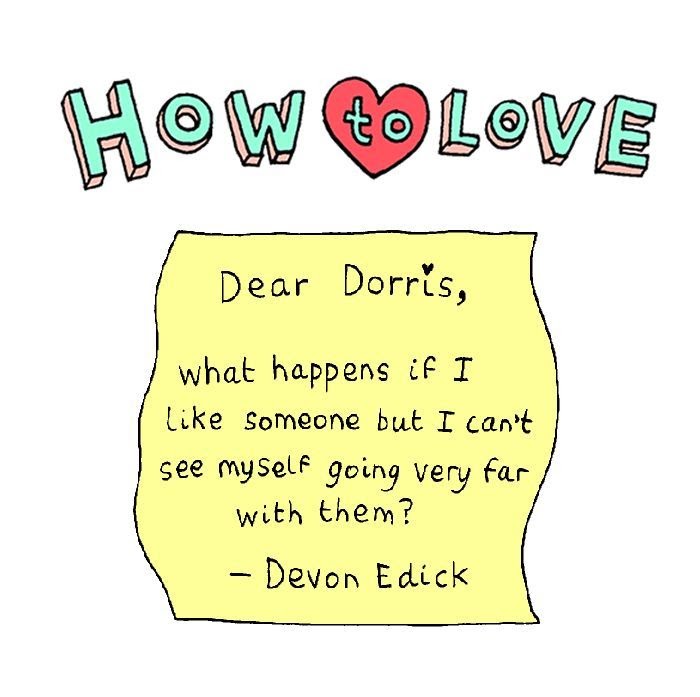 HOW to LOVE
Dear Dorris,
what happens if I
like someone but I can't
see myself going very far
with them?
– Devon Edick